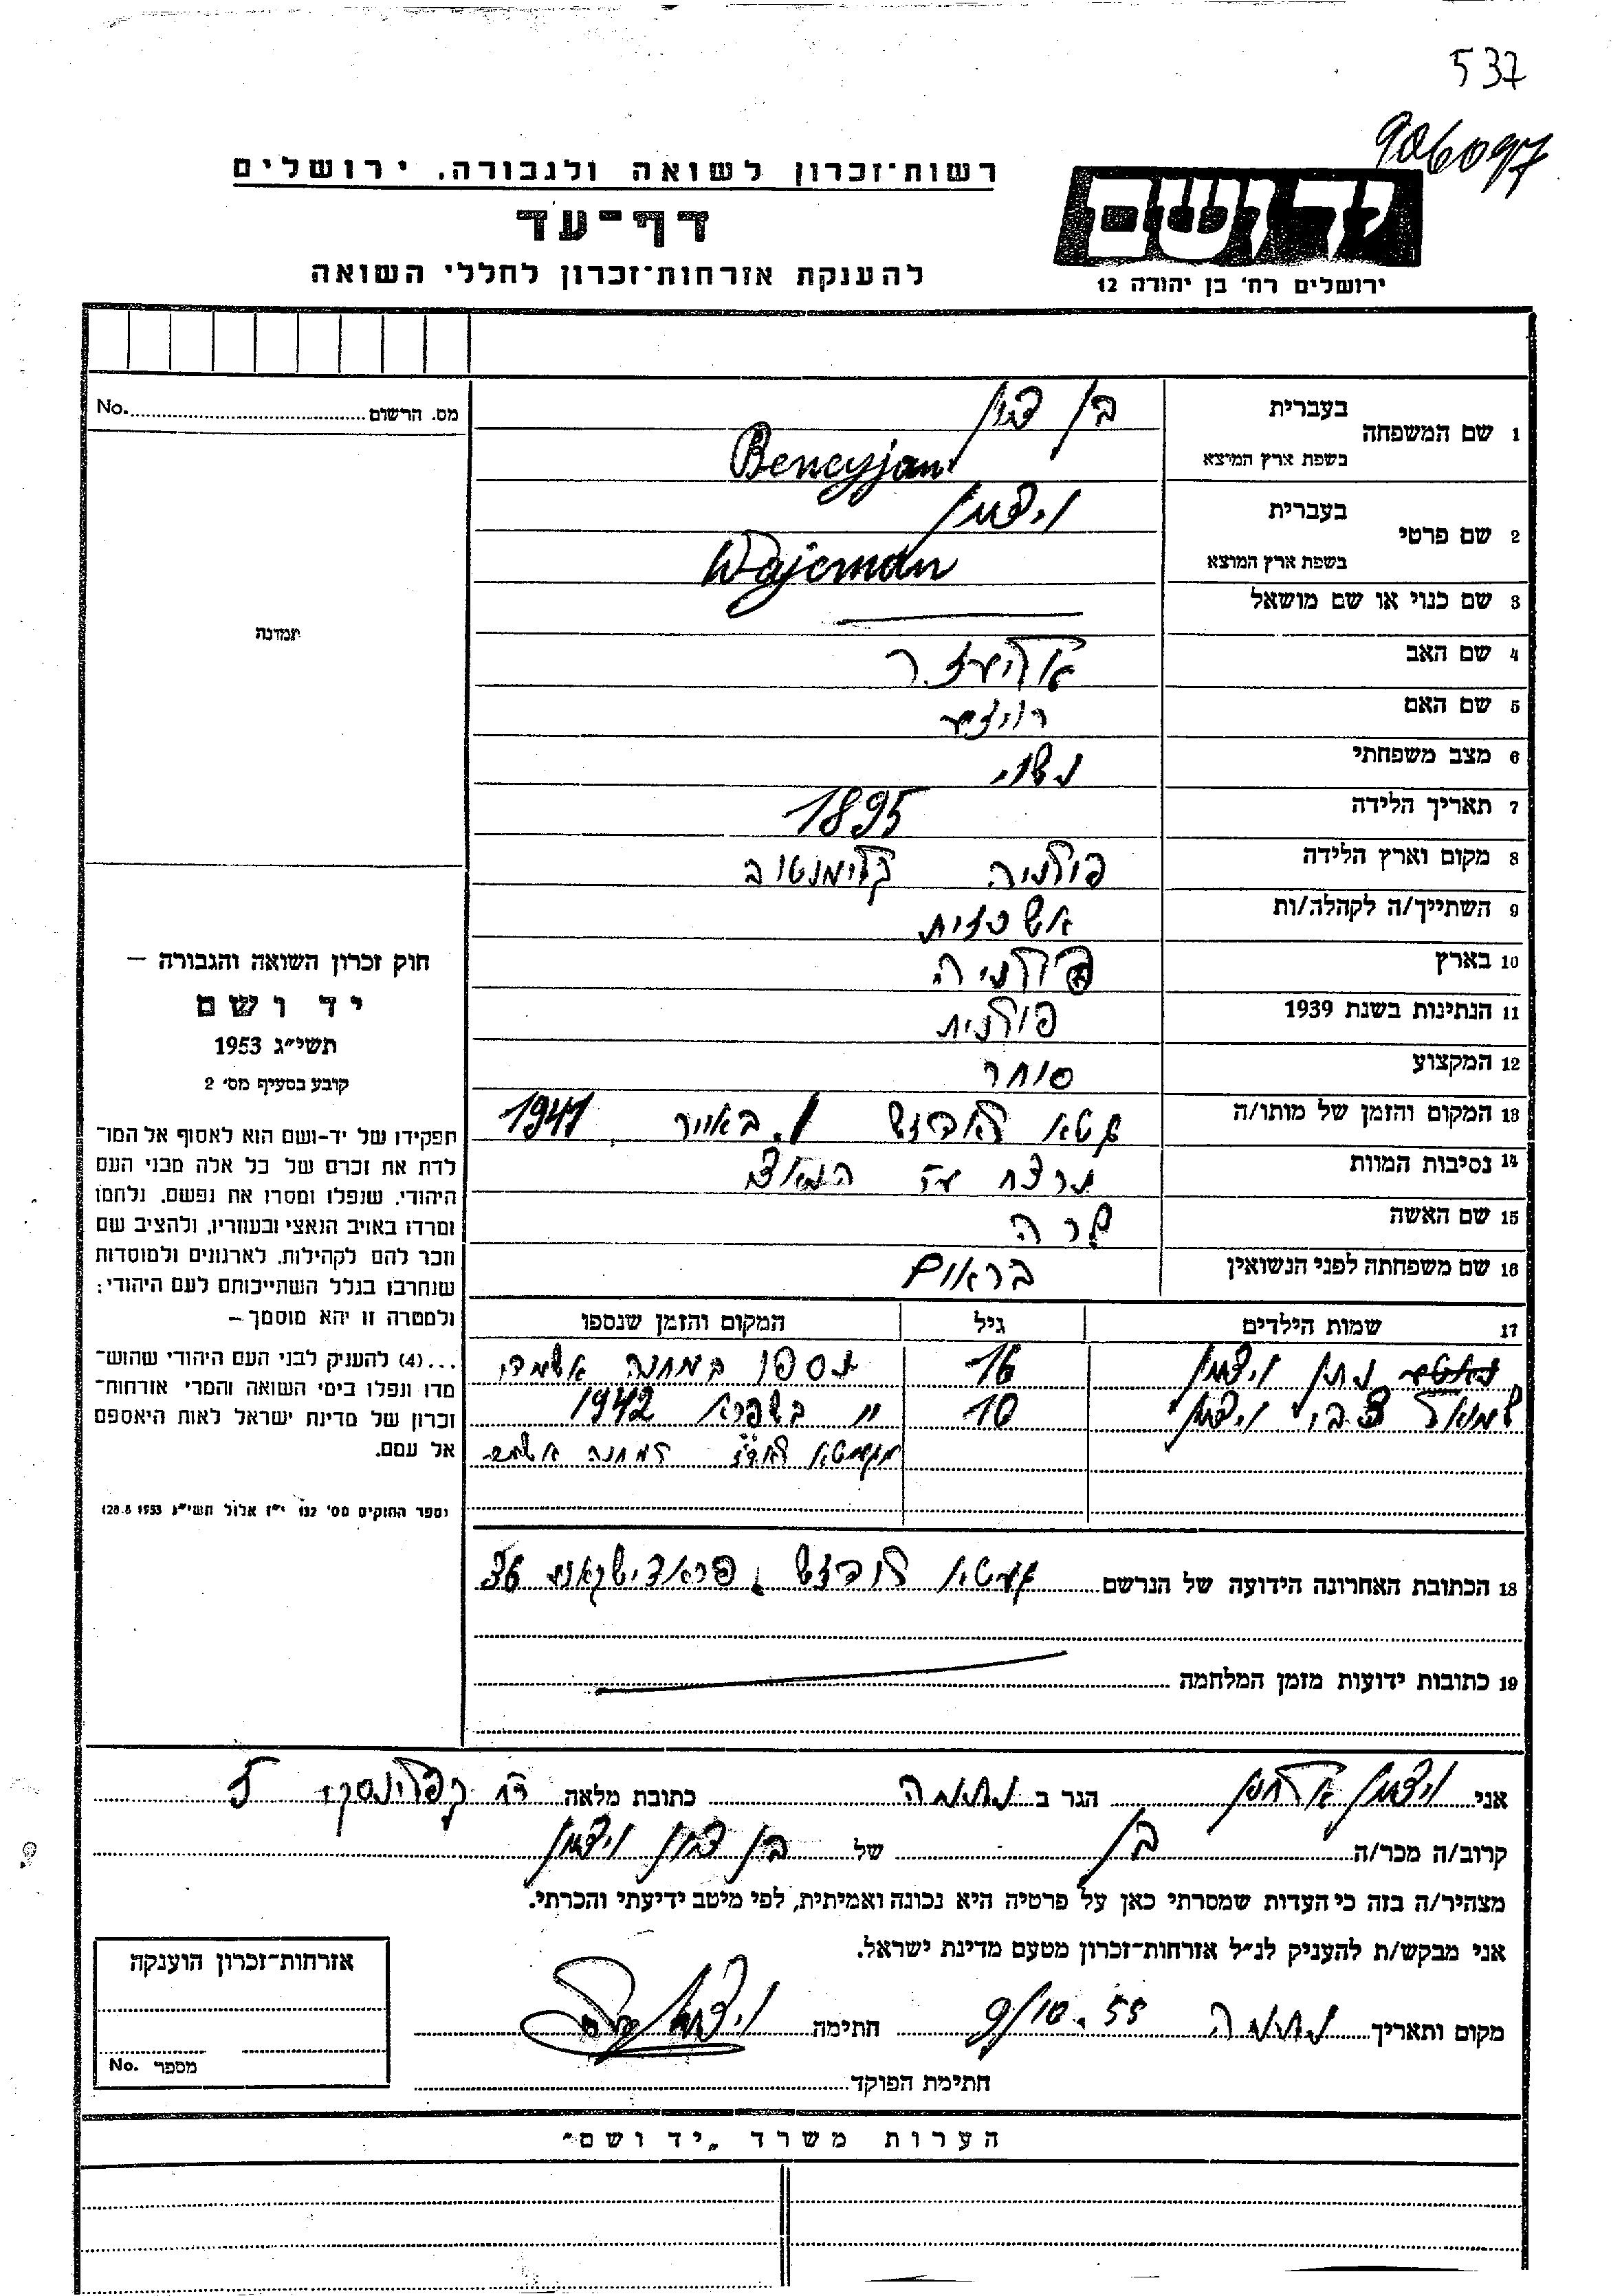 537
906097
יד ושם
ירושלים רח' בן יהודה 12
רשות־זכרון לשואה ולגבורה, ירושלים
דף־עד
להענקת אזרחות־זכרון לחללי השואה
מס. הרשום No.
תמונה
1 שם המשפחה
בעברית בן ציון
בשפת ארץ המוצא Bencyjan
2 שם פרטי
בעברית ויצמן
בשפת ארץ המוצא Wajcman
3 שם כנוי או שם מושאל
4 שם האב אליעזר
5 שם האם רויזע
6 מצב משפחתי נשוי
7 תאריך הלידה 1895
8 מקום וארץ הלידה פולניה קלימנטוב
9 השתייך/ה לקהלה/ות אשכנזית
10 בארץ פולניה
11 הנתינות בשנת 1939 פולנית
12 המקצוע סוחר
13 המקום והזמן של מותו/ה גטא לאדזש 1941
14 נסיבות המוות נרצח
15 שם האשה שרה
16 שם משפחתה לפני הנשואין בראום
17 שמות הילדים גיל המקום והזמן שנספו
נתן ויצמן 16 נספו במחנה אשמדי
שמואל צבי ויצמן 10 " 1942
18 הכתובת האחרונה הידועה של הנרשם געטא לודזש,
19 כתובות ידועות מזמן המלחמה
חוק זכרון השואה והגבורה –
יד ושם
תשי"ג 1953
קובע בסעיף מס' 2
תפקידו של יד-ושם הוא לאסוף אל המו־
לדת את זכרם של כל אלה מבני העם
היהודי, שנפלו ומסרו את נפשם, נלחמו
ומרדו באויב הנאצי ובעוזריו, ולהציב שם
וזכר להם לקהילות, לארגונים ולמוסדות
שנחרבו בגלל השתייכותם לעם היהודי;
ולמטרה זו יהא מוסמך –
...(4) להענקת לבני העם היהודי שהוש־
מדו ונפלו בימי השואה והמרי אזרחות־
זכרון של מדינת ישראל לאות היאספם
אל עמם.
(ספר החוקים מס' 132 י"ז אלול תשי"ג 28.8.1953)
אני ויצמן אלחנן הגר ב נתניה כתובת מלאה רח קפלינסקי 5
קרוב/ה מכר/ה בן של בן ציון ויצמן
מצהיר/ה בזה כי העדות שמסרתי כאן על פרטיה היא נכונה ואמיתית, לפי מיטב ידיעתי והכרתי.
אני מבקש/ת להעניק לנ"ל אזרחות־זכרון מטעם מדינת ישראל.
מקום ותאריך נתניה 9/10.55 חתימה
חתימת הפוקד
אזרחות־זכרון הוענקה
מספר No.
הערות משרד "יד ושם"